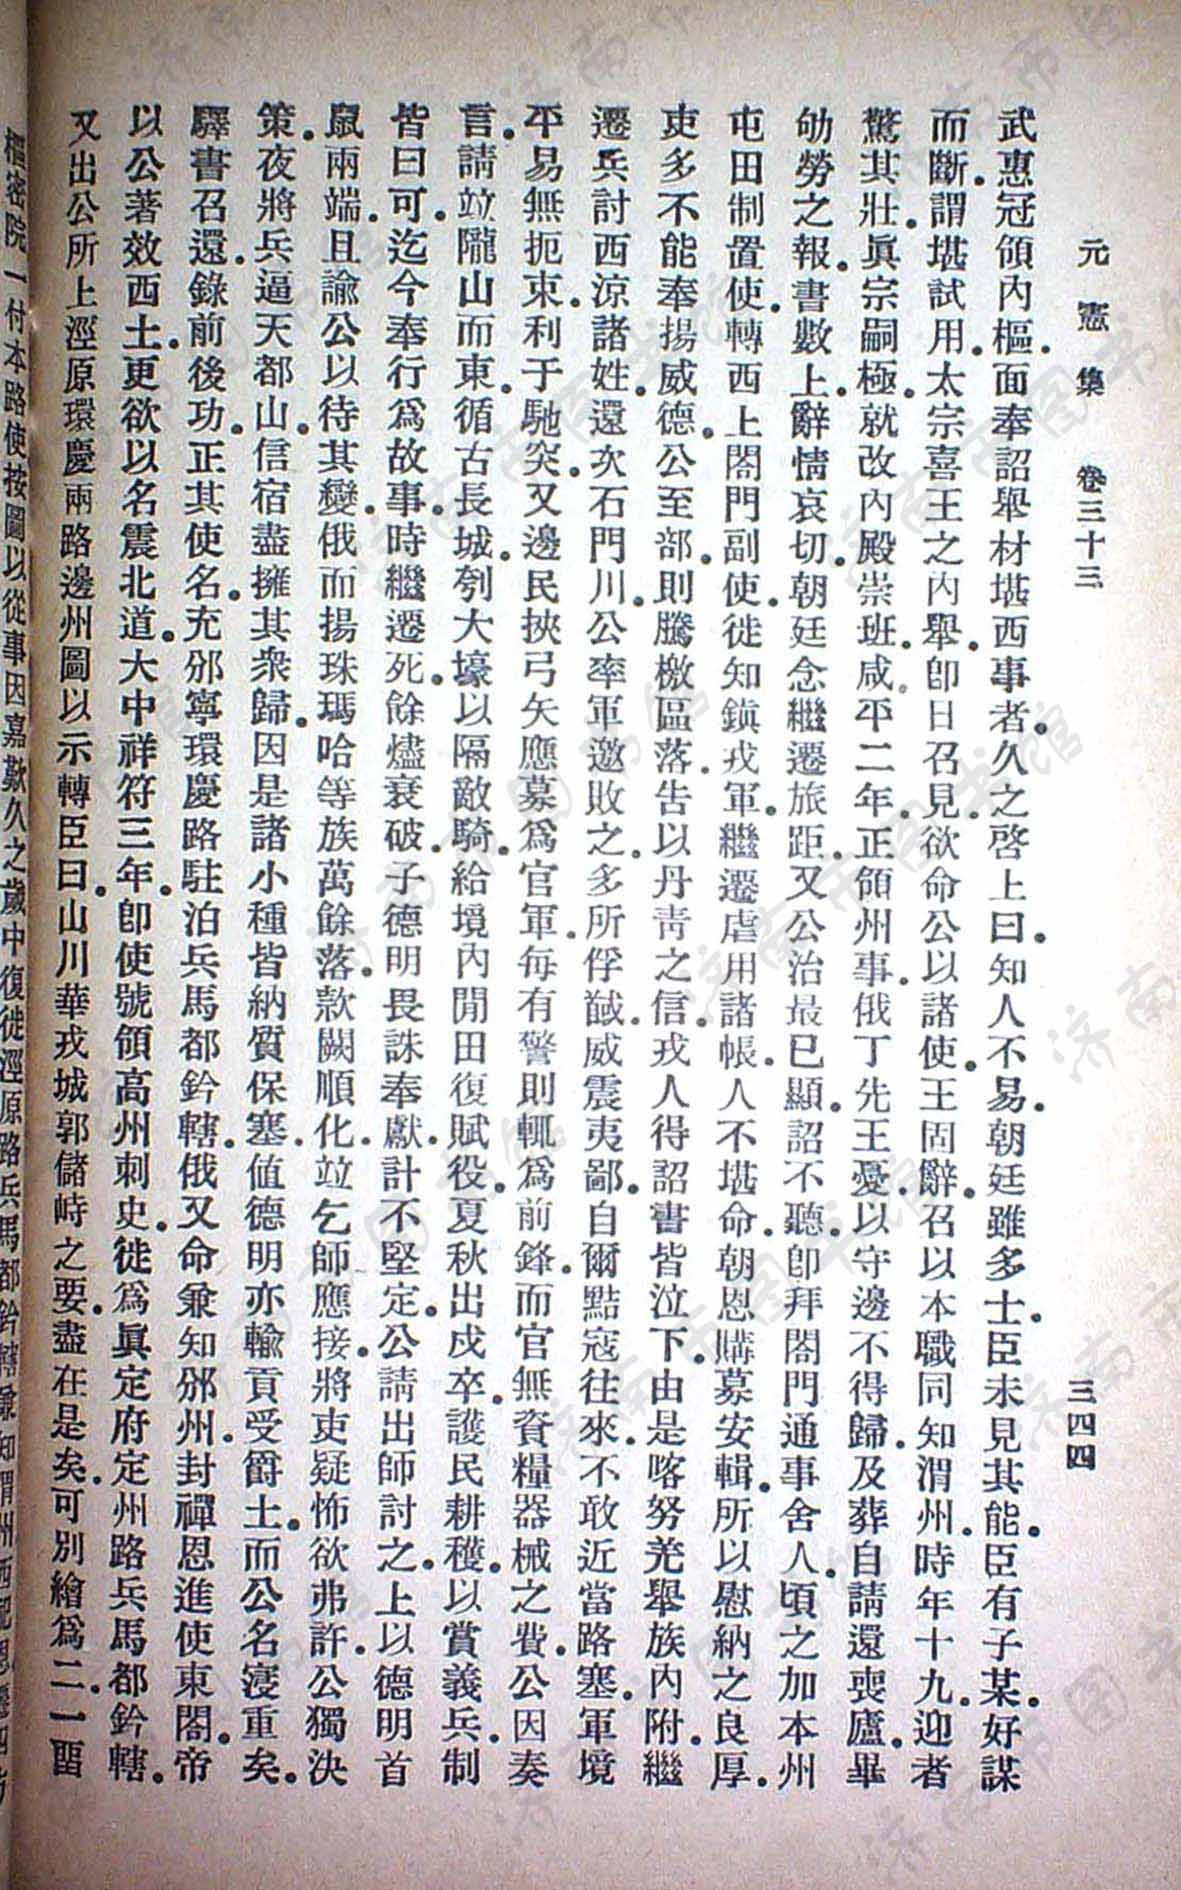 元憲集 卷三十三 三四四
武惠冠領內樞.面奉詔舉材堪西事者.久之啓上曰.知人不易.朝廷雖多士.臣未見其能.臣有子某.好謀
而斷.謂堪試用.太宗喜王之內舉.卽日召見.欲命公以諸使.王固辭.召以本職同知渭州.時年十九.迎者
驚其壯.眞宗嗣極.就改內殿崇班.咸平二年.正領州事.俄丁先王憂.以守邊不得歸.及葬自請還喪廬.畢
劬勞之報.書數上.辭情哀切.朝廷念繼遷旅距.又公治最已顯.詔不聽.卽拜閤門通事舍人.頃之加本州
屯田制置使.轉西上閤門副使.徙知鎭戎軍.繼遷虐用諸帳.人不堪命.朝恩購募安輯.所以慰納之良厚.
吏多不能奉揚威德.公至部.則騰檄區落.告以丹靑之信.戎人得詔書皆泣下.由是喀努羌舉族內附.繼
遷兵討西涼諸姓.還次石門川.公率軍邀敗之.多所俘馘.威震夷鄙.自爾點寇往來.不敢近當路塞.軍境
平易無扼束.利于馳突.又邊民挾弓矢應募爲官軍.每有警則輒爲前鋒.而官無資糧器械之費.公因奏
言.請竝隴山而東.循古長城.刳大壕以隔敵騎.給境內閒田復賦役.夏秋出戍卒.護民耕穫.以賞義兵.制
皆曰可.迄今奉行爲故事.時繼遷死.餘燼衰破.子德明畏誅奉獻.計不堅定.公請出師討之.上以德明首
鼠兩端.且諭公以待其變.俄而揚珠瑪哈等族萬餘落.款闕順化.竝乞師應接.將吏疑怖欲弗許.公獨決
策.夜將兵逼天都山.信宿盡擁其衆歸.因是諸小種皆納質保塞.値德明亦輸貢受爵土.而公名寖重矣.
驛書召還.錄前後功.正其使名.充邠寧環慶路駐泊兵馬都鈐轄.俄又命兼知邠州.封禪恩進使東閤.帝
以公著效西土.更欲以名震北道.大中祥符三年.卽使號領高州刺史.徙爲眞定府定州路兵馬都鈐轄.
又出公所上涇原環慶兩路邊州圖以示轉臣曰.山川華戎城郭儲峙之要.盡在是矣.可別繪爲二.一留
樞密院一付本路使按圖以從事因嘉歎久之歲中復徙涇原路兵馬都鈐轄兼知渭州